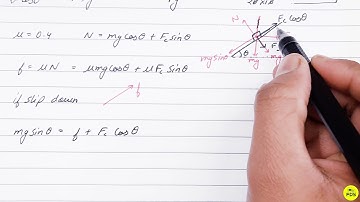 μ = 0.4 N = mg cosθ + Fc sinθ
f = μN = μmg cosθ + μFc sinθ
f
if slip down
mg sinθ = f + Fc cosθ
N
Fc cosθ
mg sinθ
θ
mg
F